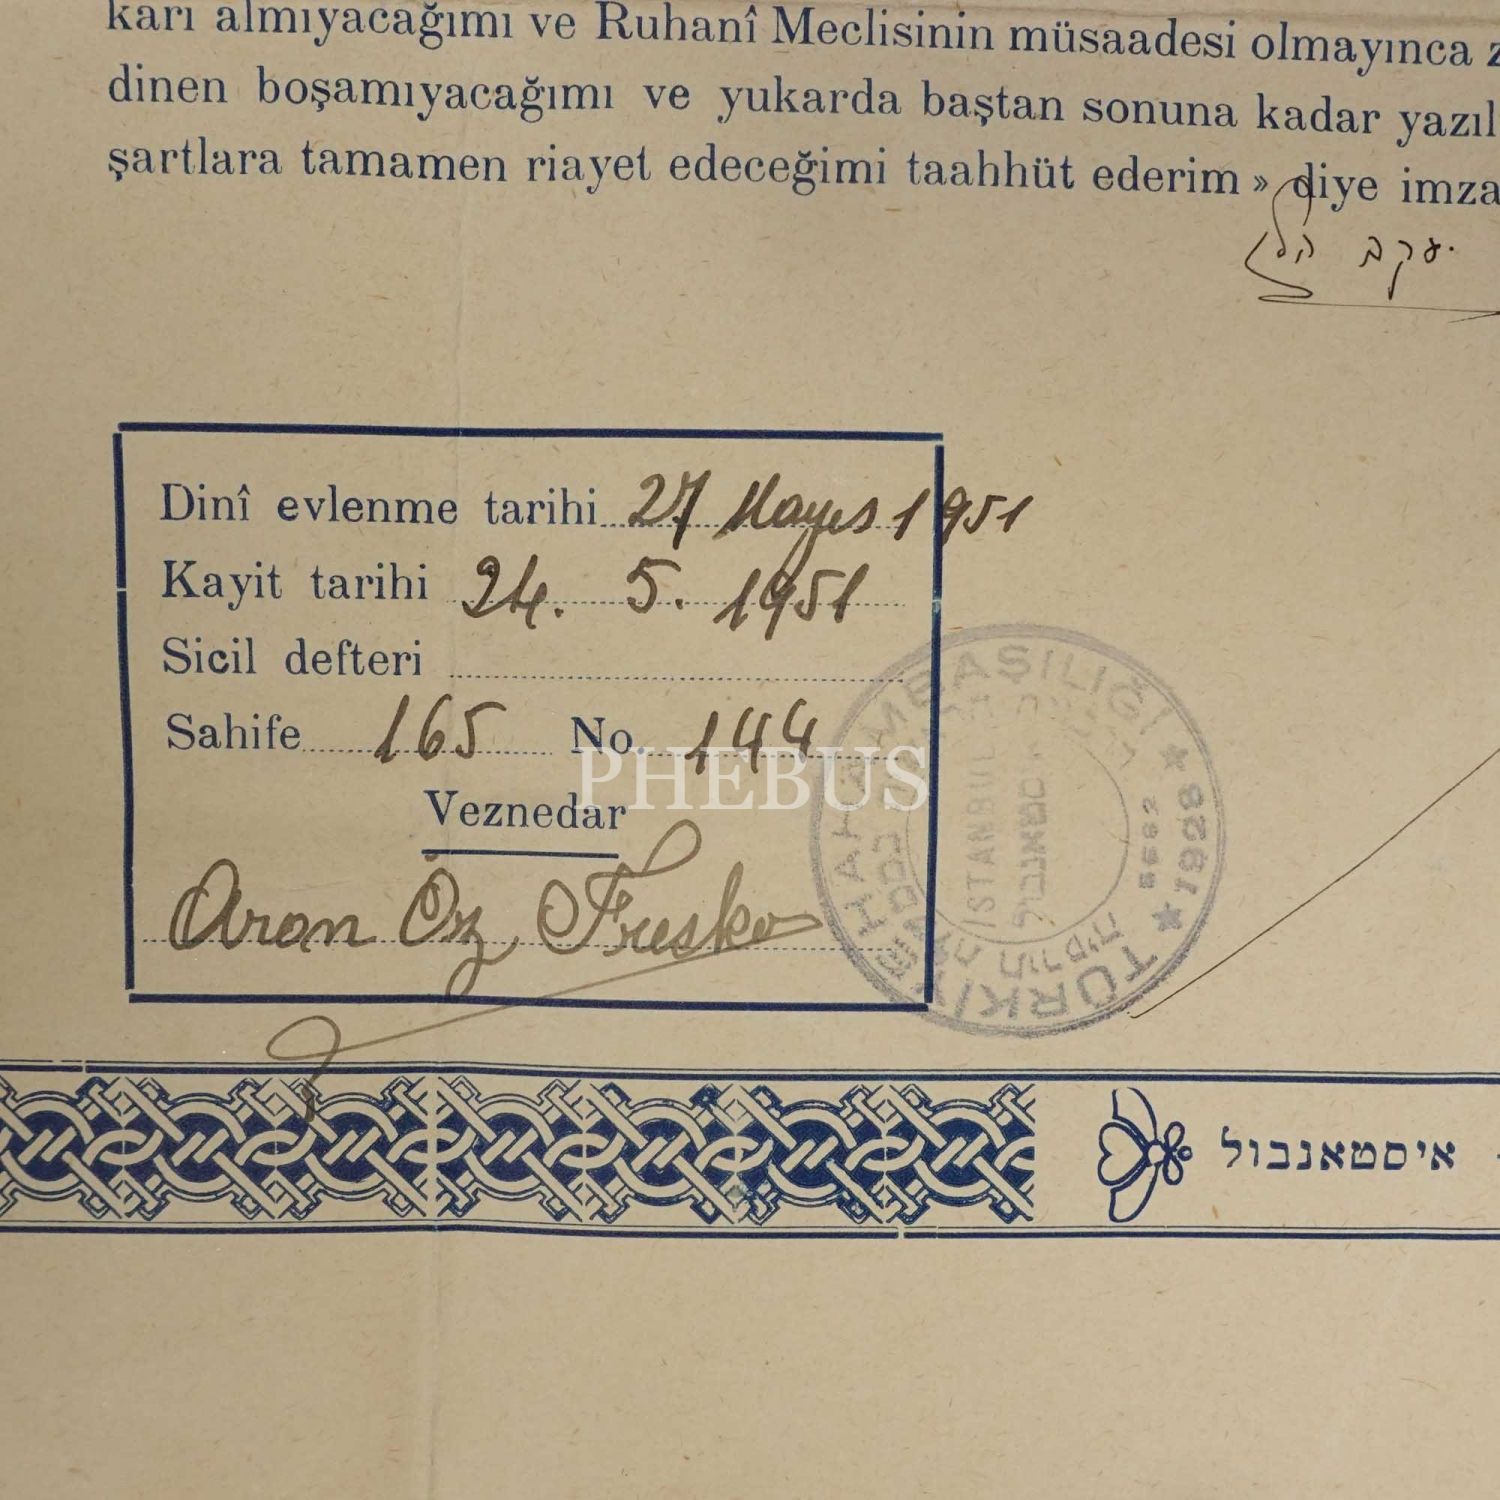 karı almıyacağımı ve Ruhanî Meclisinin müsaadesi olmayınca z
dinen boşamıyacağımı ve yukarda baştan sonuna kadar yazıl
şartlara tamamen riayet edeceğimi taahhüt ederim » diye imza
Dinî evlenme tarihi 27 Mayıs 1951
Kayit tarihi 24. 5. 1951
Sicil defteri
Sahife 165 No. 144
PHEBUS
Veznedar
Aron Öz Fresko
TÜRKİYE HAHAMBAŞILIĞI
★ 1928 ★
5682
İSTANBUL
איסטאנבול
איסטאנבול